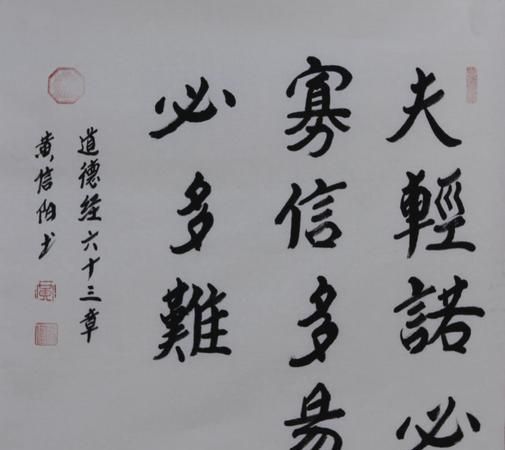 夫輕諾必
寡信多易
必多難
道德经六十三章
黄信伯书